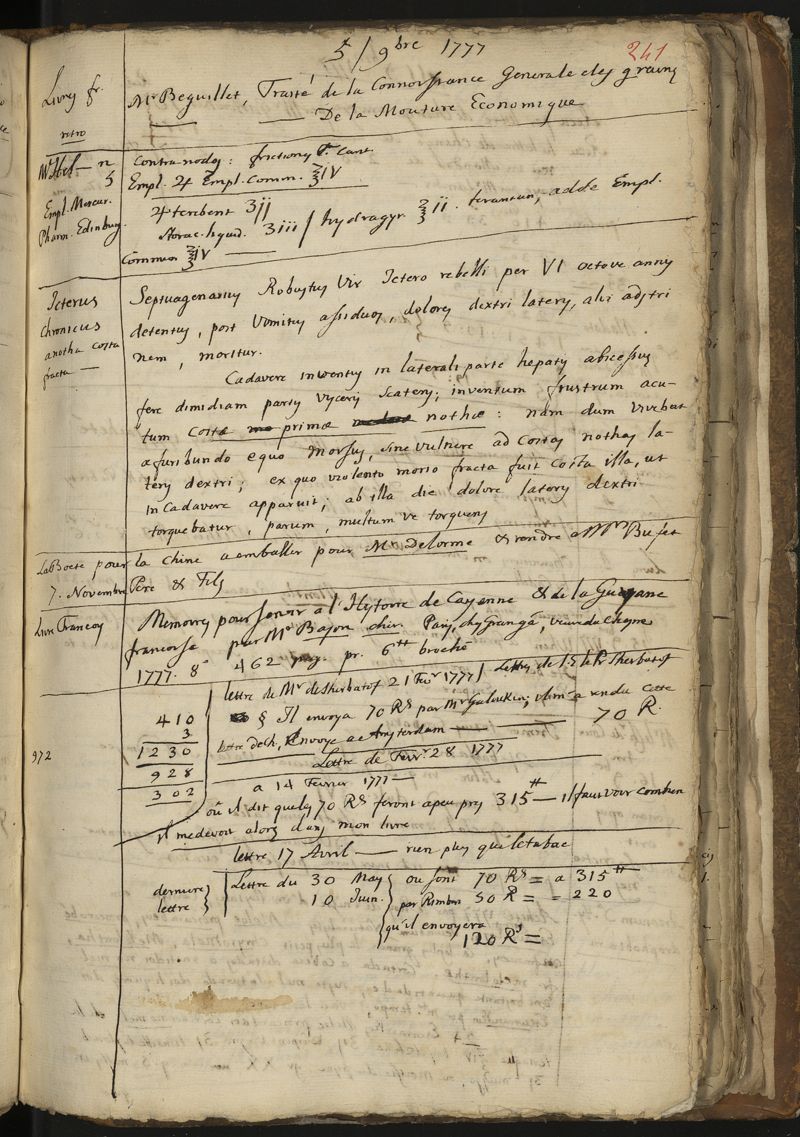 5 / 9bre 1777
241
Livres fr.
retro
Mr Beguillet, Traité de la Connoissance Generale des grains
De la Mouture Economique
Contra nodos: frictiones
Empl. ♃ Empl. Comm. ℥IV
Empl. Mercur.
Pharm. Edinburg.
♃ tereb ent ʒij
hydragyr. ℥ii. terantur, adde Empl.
Storac. liquid. ʒiii
Commun ℥IV
Icterus
Chronicus
a notha costa
fracta
Septuagenarius Robustus Vir Ictero rebelli per VI octove annos
detentus, post Vomitus assiduos, dolores dextri lateris, alvi adstri
nem, moritur.
Cadavere inventus in laterali parte hepatis abscessus
fere dimidiam partem Visceris scatens; inventum frustrum acu-
tum Costæ primæ nothæ: nam dum vivebat
a furibundo equo morsus, sine vulnere ad Costas nothas la-
teris dextri; ex quo violento morso fracta fuit Costa illa, ut
in Cadavere apparuit; ab illa die dolore lateris dextri
torquebatur, parum, multum ve torquens
La Boete pour la Chine a emballer pour Mr Delorme & rendre a Mrs Bufet
7. Novembre Pere & Fils
Livre Francois
Memoires pour servir a l'Histoire de Cayenne & de la Guyane
francoise par Mr Bajon chir. Paris, chez Grangé, veuve du Chesne
1777. 8° 462 pag. pr. 6tt broché
lettre de Mr de Sherbatof 21 Fevr 1777 / Lettre de
§ Il envoya 70 Rs par Mr Galitzin; il m'a rendu cette
70 R.
lettre de ch, Envoye a Amsterdam
Lettre de Fevr. 28 1777
a 14 Fevrier 1777
410
3
1230
928
302
972
où il dit que les 70 Rs feront a peu prs 315tt — il faut voir combien
il me devoit alors dans mon livre
lettre 17 Avril — rien plus que le tabac
derniere
lettre
Lettre du 30 May
10 Juin.
ou sont 70 Rs = a 315tt
par Rimbert 50 R = = 220
qu'il envoyera
120 Rs =